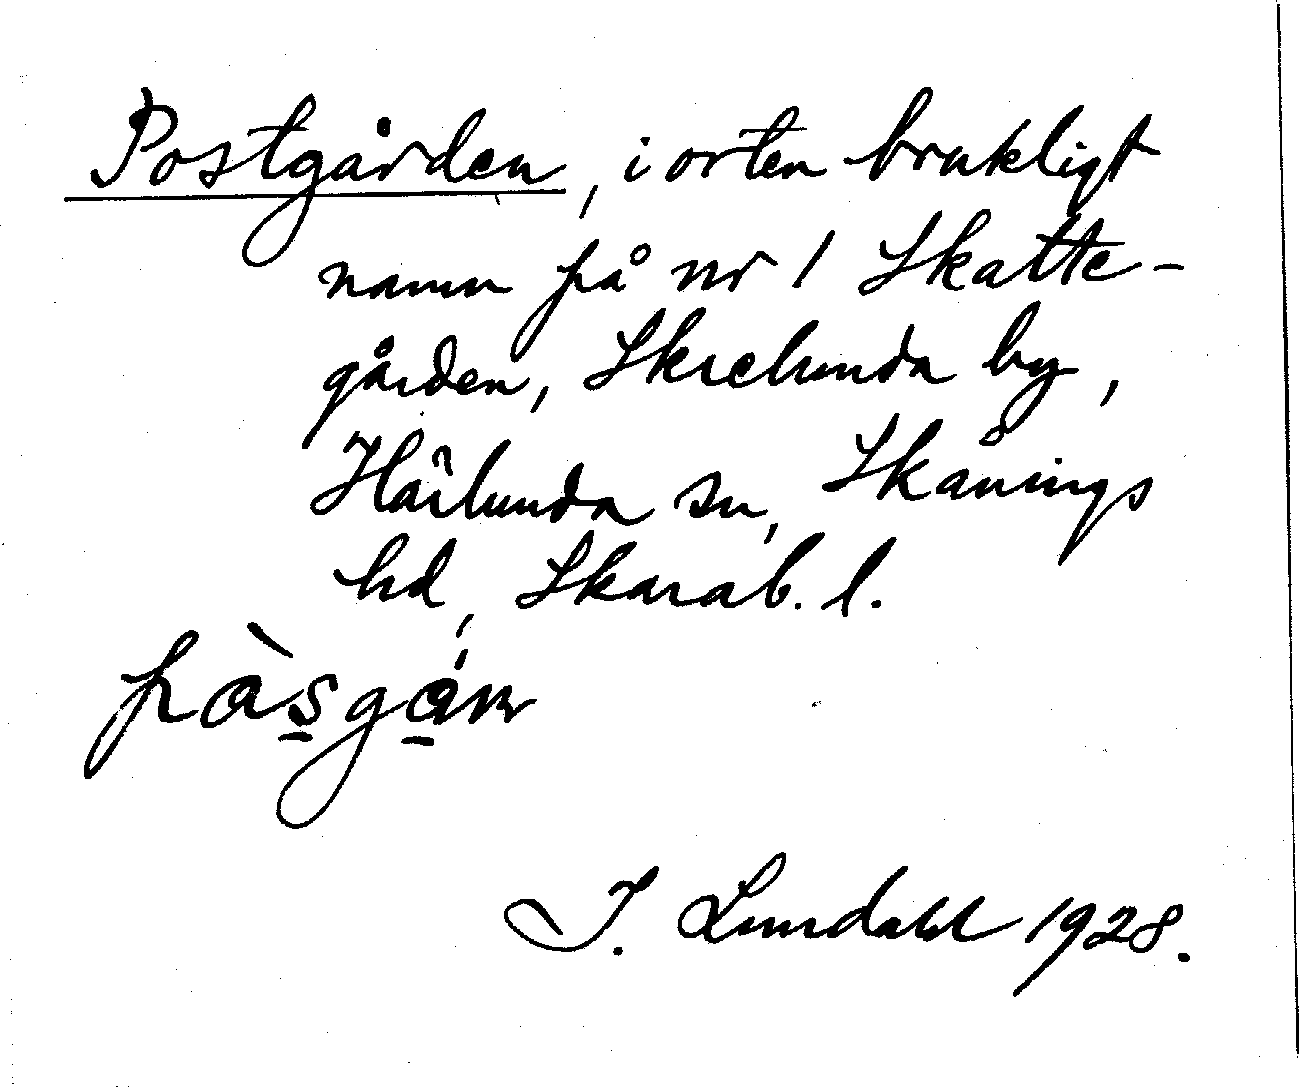 Postgården, i orten brukligt
namn på nr 1 Skatte-
gården, Skrelunda by,
Härlunda sn, Skånings
hd, Skarab. l.
I. Lundahl 1928.